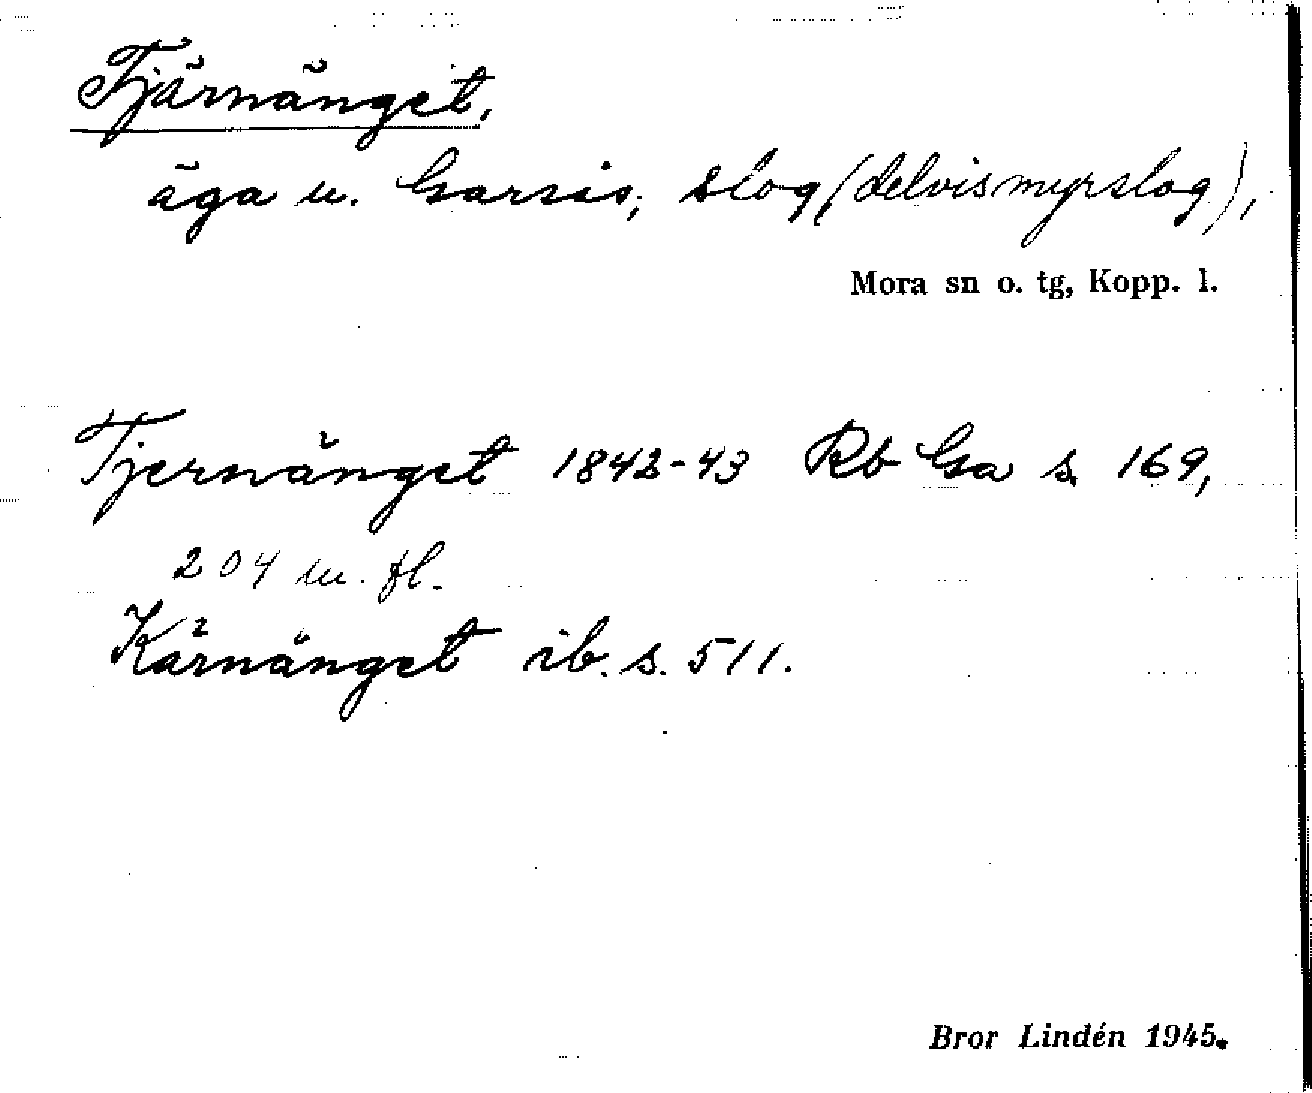 Tjärnänget,
äga u. Garsås, slog (delvis myrslog),
Mora sn o. tg, Kopp. l.
Tjernänget 1842-43 Rb Gsa s. 169,
204 m. fl.
Kärnänget ib. s. 511.
Bror Lindén 1945.